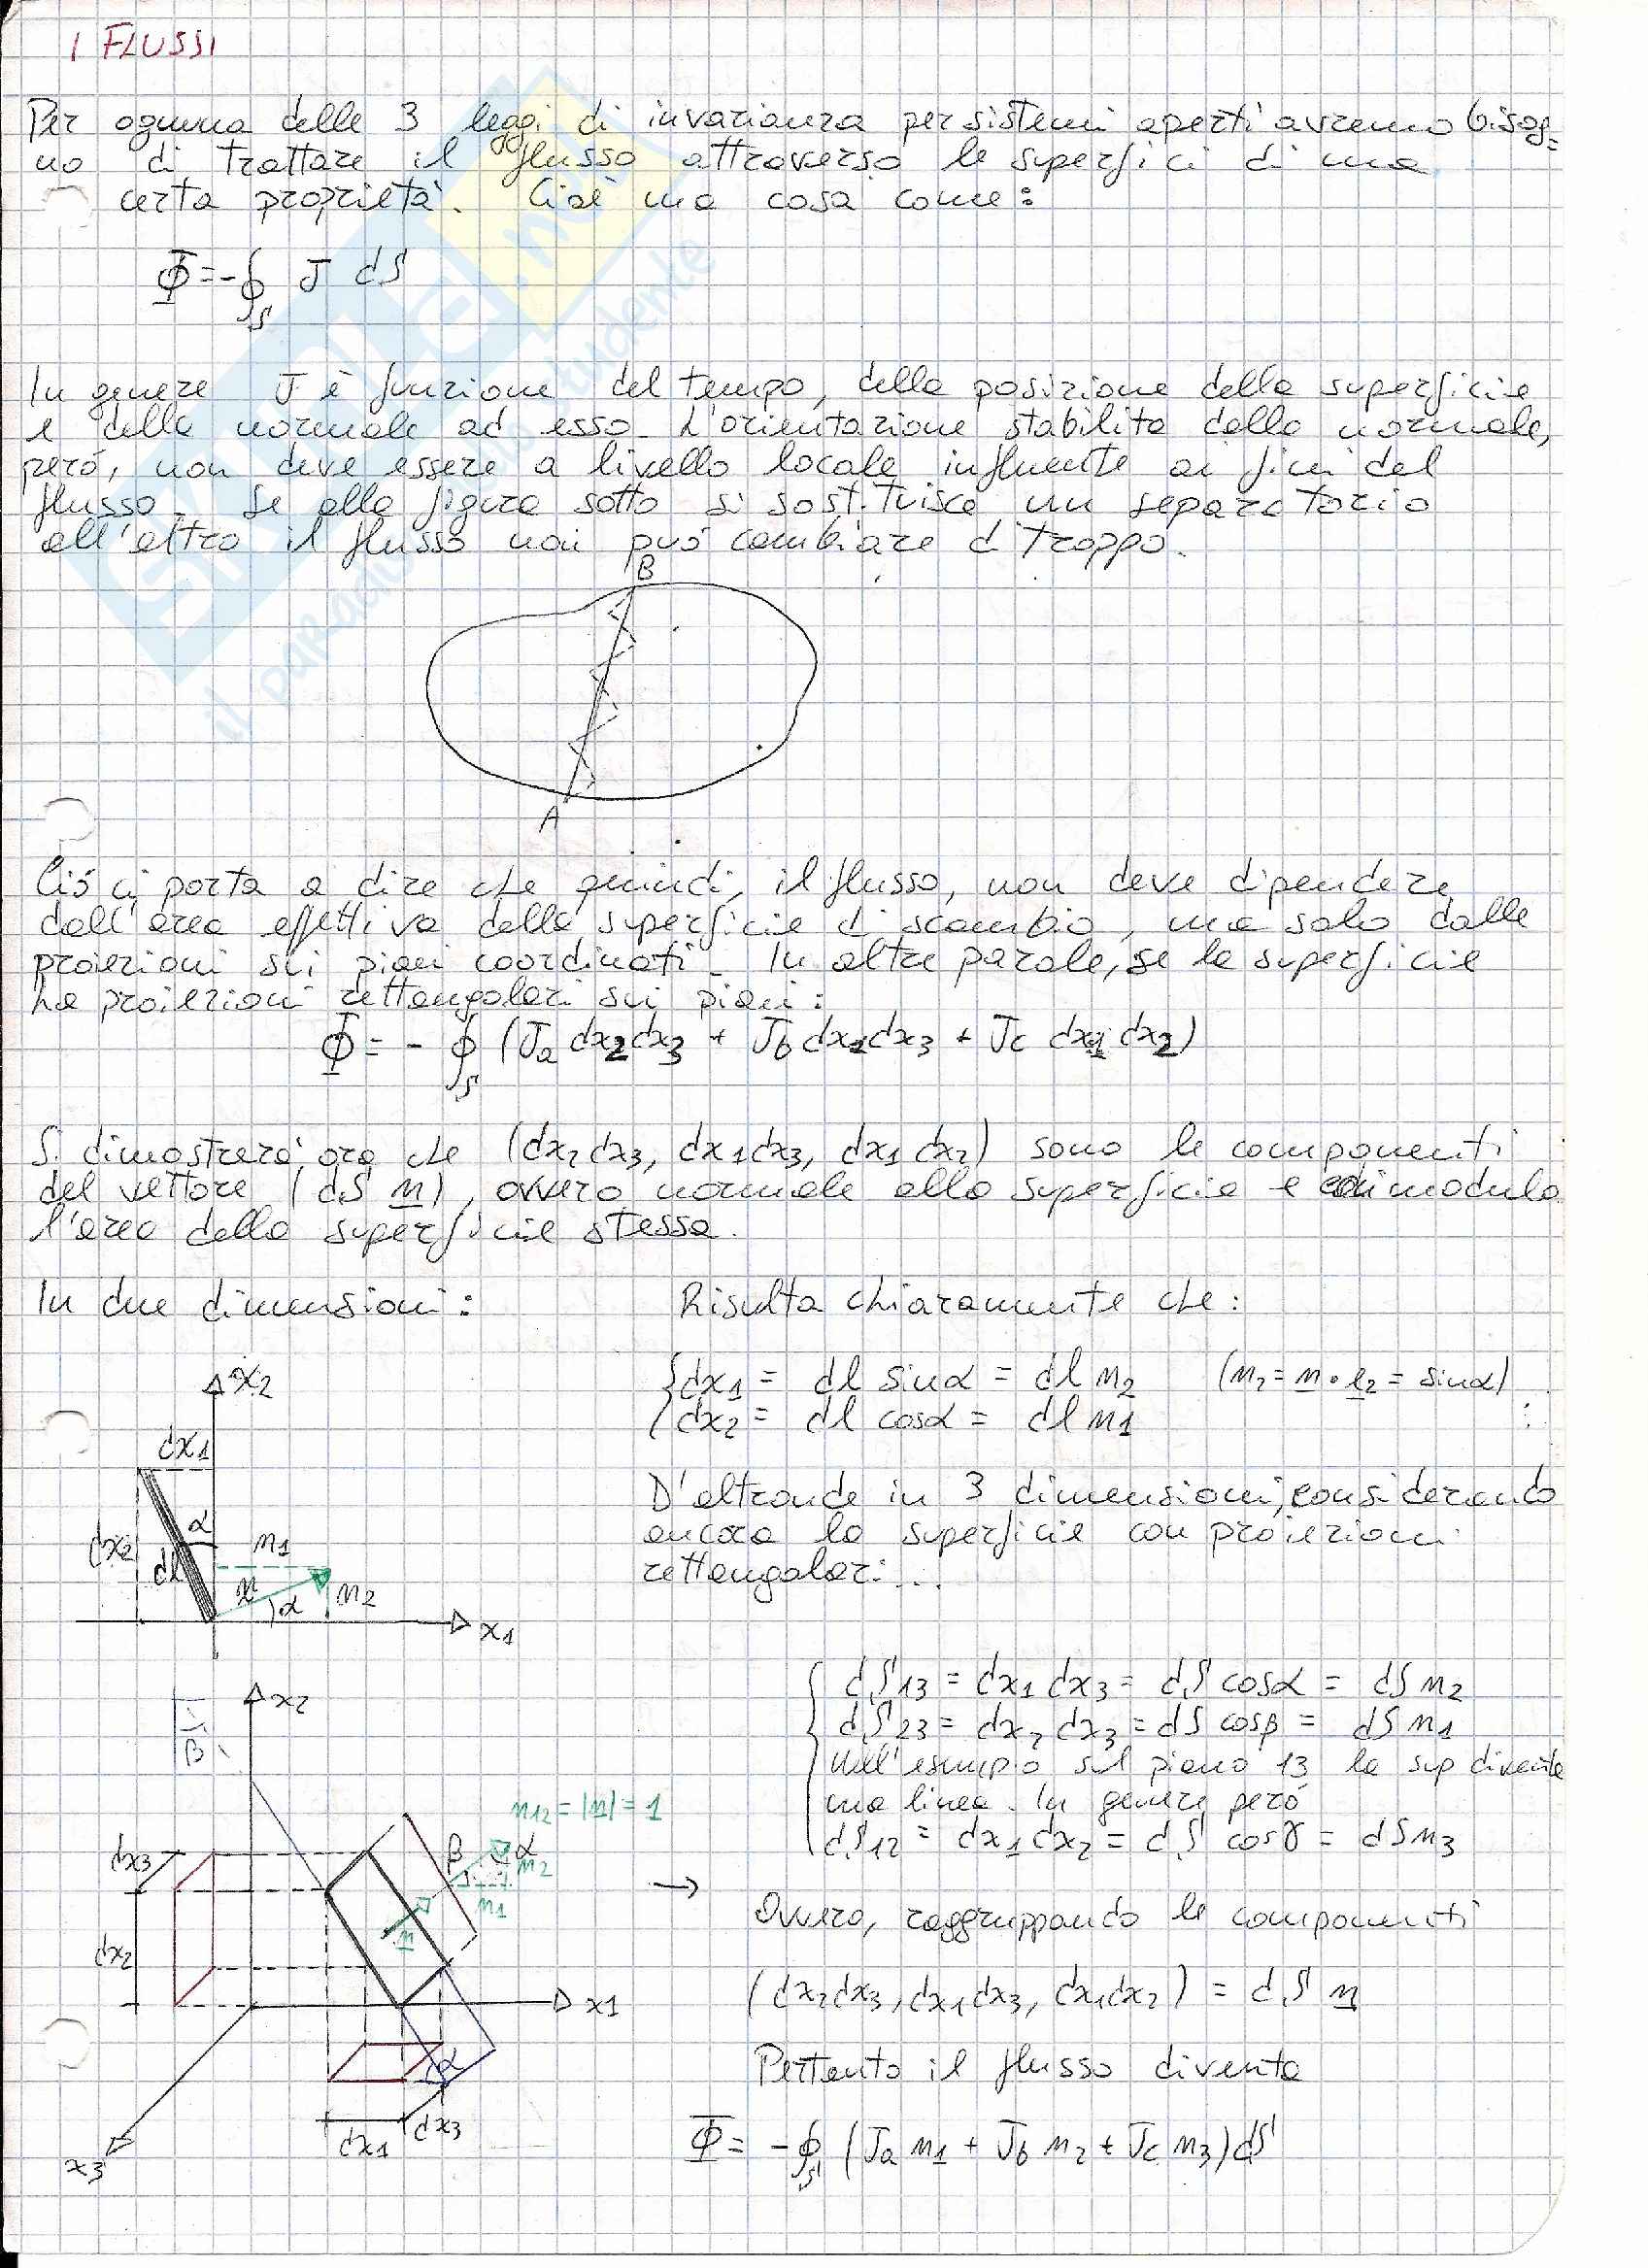 I FLUSSI
Per ognuna delle 3 leggi di invarianza per sistemi aperti avremo bisog=
no di trattare il flusso attraverso le superfici di una
certa proprietà. Cioè una cosa come:
Φ = -∮S J dS
In genere J è funzione del tempo, della posizione della superficie
e della normale ad essa. L'orientazione stabilita della normale,
però, non deve essere a livello locale influente ai fini del
flusso. Se alla figura sotto si sostituisce un separatorio
all'altro il flusso non può cambiare di troppo.
B
A
Ciò ci porta a dire che quindi, il flusso, non deve dipendere
dall'area effettiva della superficie di scambio, ma solo dalle
proiezioni sui piani coordinati. In altre parole, se la superficie
ha proiezioni rettangolari sui piani:
Φ = - ∮S (Ja dx2dx3 + Jb dx1dx3 + Jc dx1 dx2)
Si dimostrerà ora che (dx2dx3, dx1dx3, dx1dx2) sono le componenti
del vettore (dS n), ovvero normale alla superficie e con modulo
l'area della superficie stessa.
In due dimensioni:
Risulta chiaramente che:
x2
dx1
dx2
dl
α
n1
n
α
n2
x1
{dx1 = dl sinα = dl n2 (n2 = n • e2 = sinα)
dx2 = dl cosα = dl n1
D'altronde in 3 dimensioni, considerando
ancora la superficie con proiezioni
rettangolari...
x2
β
n12 = |n| = 1
dx3
β
α
n2
n1
n
dx2
x1
α
dx1
dx3
x3
{dS13 = dx1 dx3 = dS cosα = dS n2
dS23 = dx2 dx3 = dS cosβ = dS n1
Nell'esempio sul piano 13 la sup diventa
una linea. In genere però
dS12 = dx1 dx2 = dS cosγ = dS n3
→ Ovvero, raggruppando le componenti
(dx2dx3, dx1dx3, dx1dx2) = dS n
Pertanto il flusso diventa
Φ = -∮S (Ja n1 + Jb n2 + Jc n3) dS